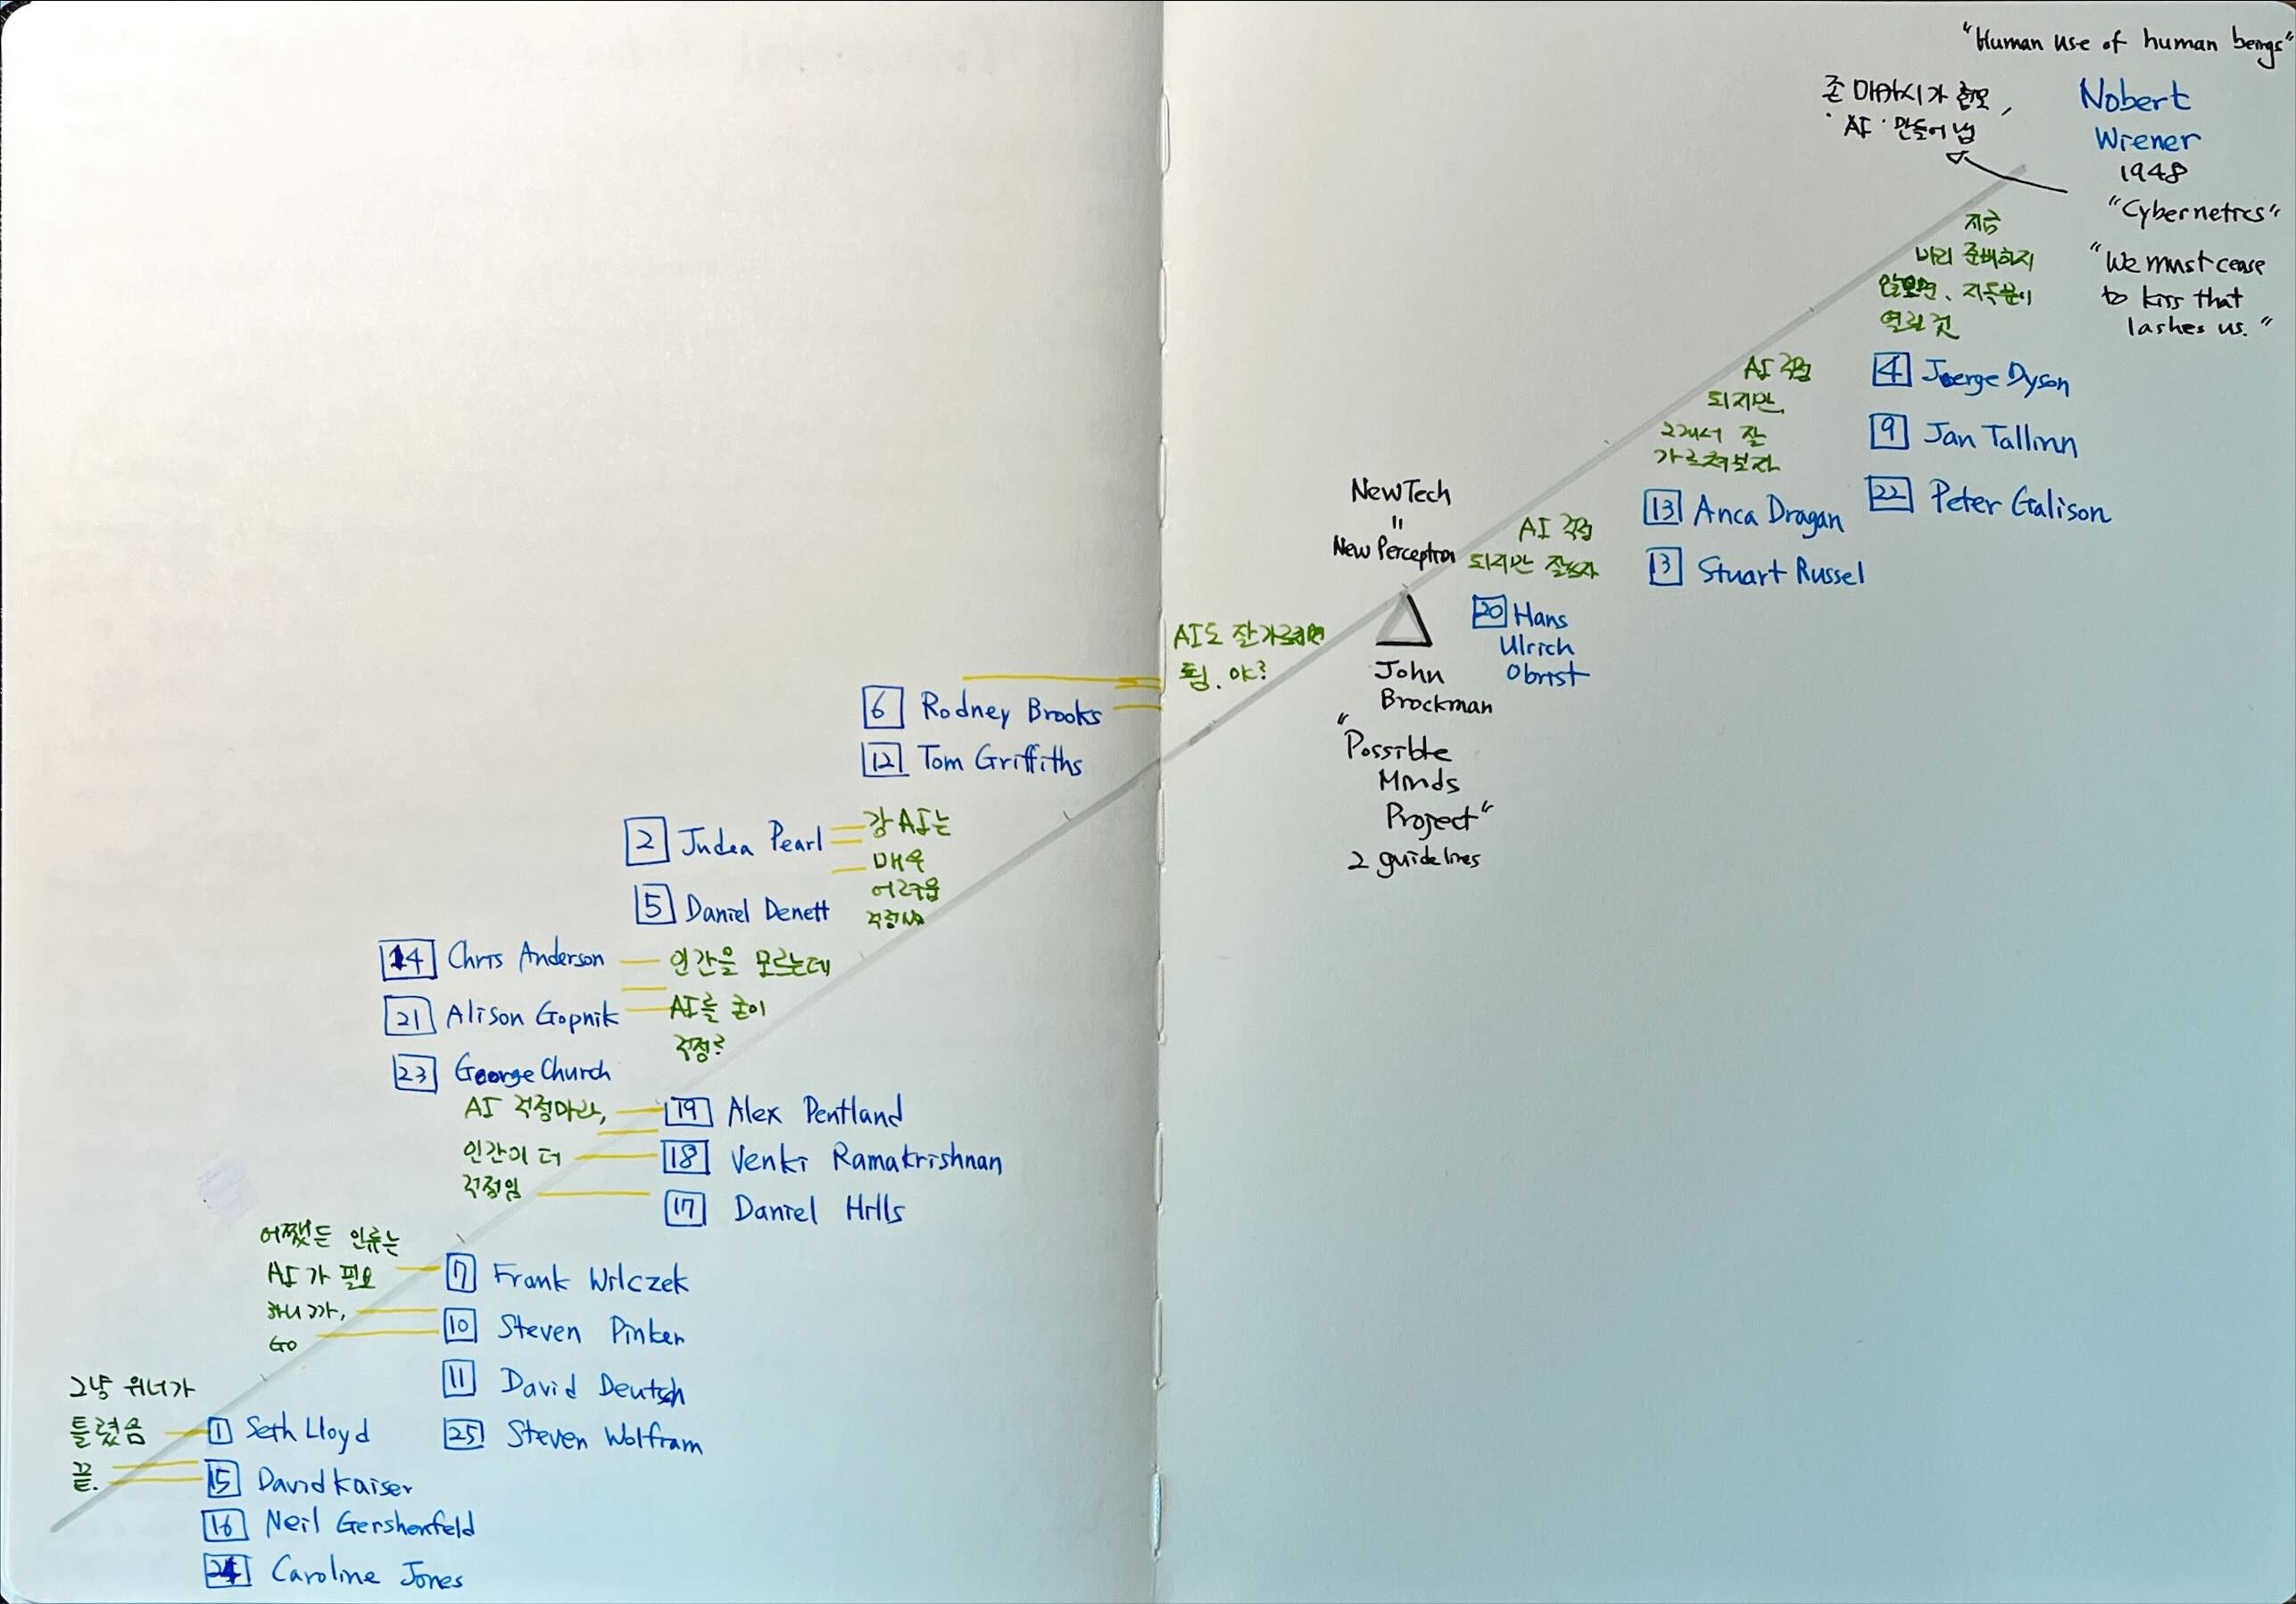 "Human use of human beings"
Nobert
Wiener
1948
"Cybernetics"
"We must cease
to kiss that
lashes us."
존 마카시가 혐오,
'AI' 만들어 냄
지금
미리 준비하지
않으면, 지옥문이
열릴 것
4 Joerge Dyson
9 Jan Tallinn
22 Peter Galison
AI 걱정
되지만
그래서 잘
가르쳐보자
13 Anca Dragan
3 Stuart Russel
New Tech
=
New Perception
AI 걱정
되지만 잘쓰자
20 Hans
Ulrich
Obrist
John
Brockman
"Possible
Minds
Project"
2 guidelines
AI도 잘가르치면
됨. 야?
6 Rodney Brooks
12 Tom Griffiths
2 Judea Pearl
5 Daniel Denett
강 AI는
매우
어려움
14 Chris Anderson
21 Alison Gopnik
23 George Church
인간을 모르는데
AI를 굳이
걱정?
AI 걱정마라,
인간이 더
걱정임
19 Alex Pentland
18 Venki Ramakrishnan
17 Daniel Hills
어쨌든 인류는
AI가 필요
하니까,
GO
7 Frank Wilczek
10 Steven Pinker
11 David Deutsch
25 Steven Wolfram
그냥 위너가
틀렸음
끝.
1 Seth Lloyd
15 David Kaiser
16 Neil Gershenfeld
24 Caroline Jones